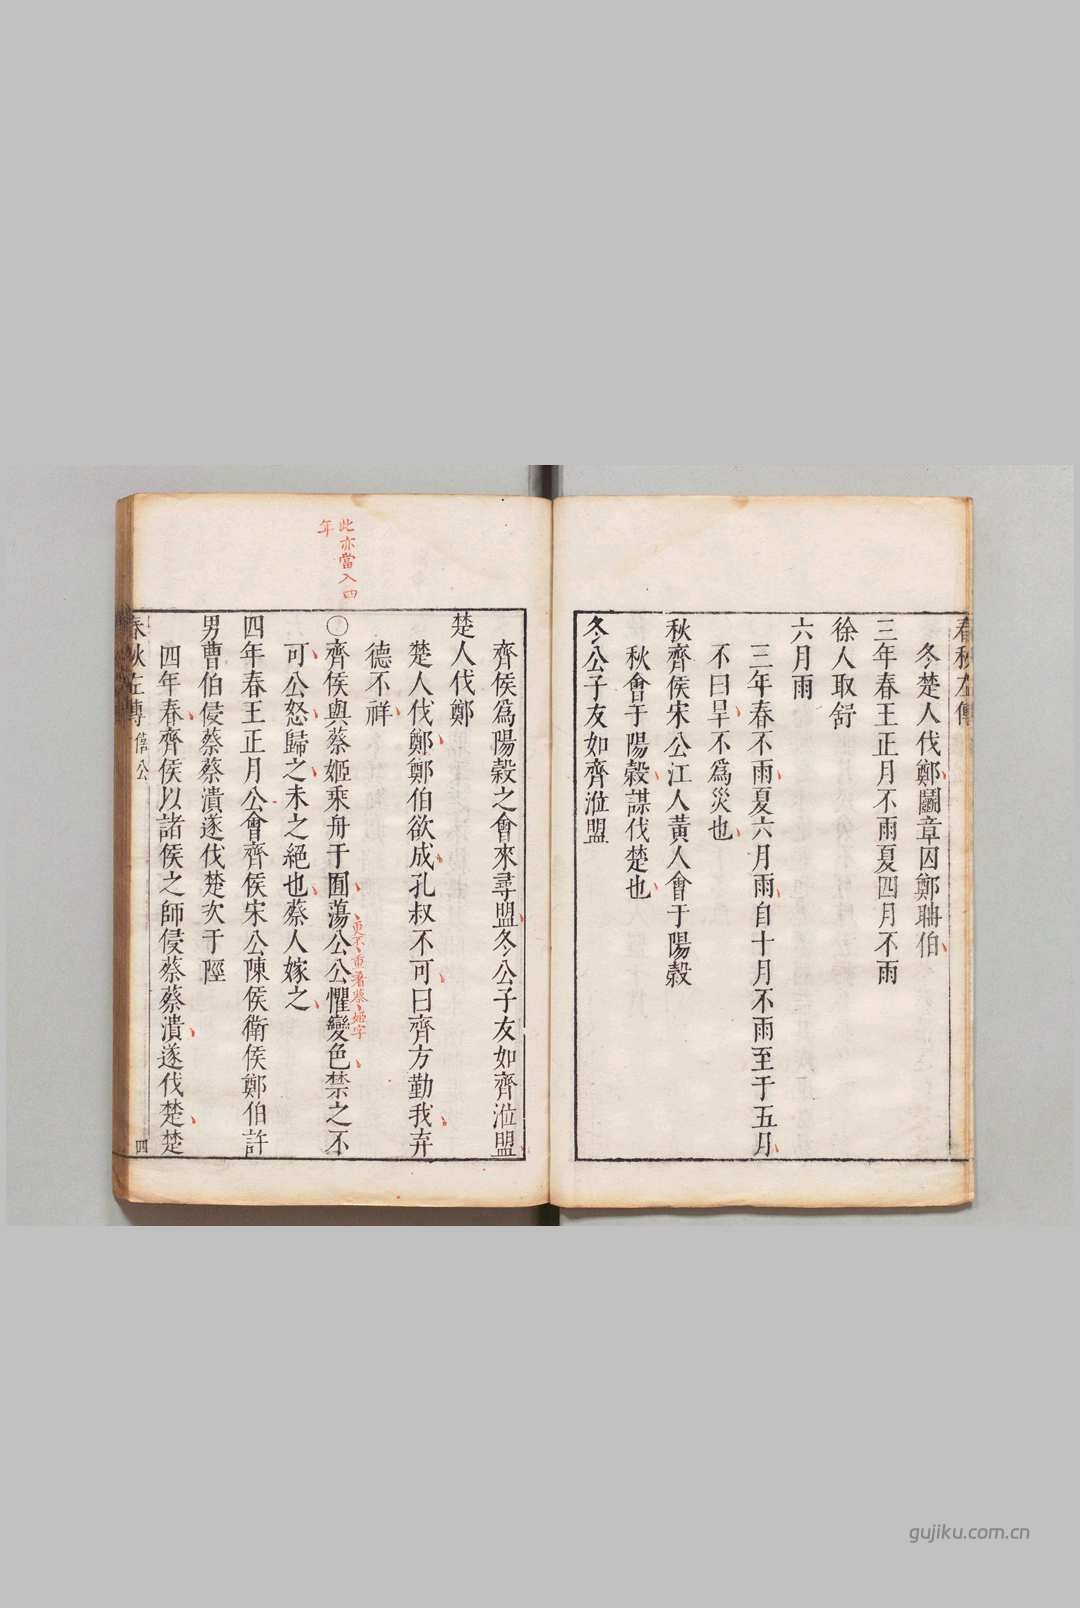 春秋左傳
冬楚人伐鄭鬬章囚鄭聃伯
三年春王正月不雨夏四月不雨
徐人取舒
六月雨
三年春不雨夏六月雨自十月不雨至于五月
不曰旱不爲災也
秋齊侯宋公江人黃人會于陽穀
秋會于陽穀謀伐楚也
冬公子友如齊涖盟
齊侯爲陽穀之會來尋盟冬公子友如齊涖盟
楚人伐鄭
楚人伐鄭鄭伯欲成孔叔不可曰齊方勤我弃
德不祥
此亦當入四
年
○齊侯與蔡姬乘舟于囿蕩公公懼變色禁之不
更不重著蔡姬字
可公怒歸之未之絕也蔡人嫁之
四年春王正月公會齊侯宋公陳侯衛侯鄭伯許
男曹伯侵蔡蔡潰遂伐楚次于陘
四年春齊侯以諸侯之師侵蔡蔡潰遂伐楚楚
春秋左傳 僖公 四
gujiku.com.cn